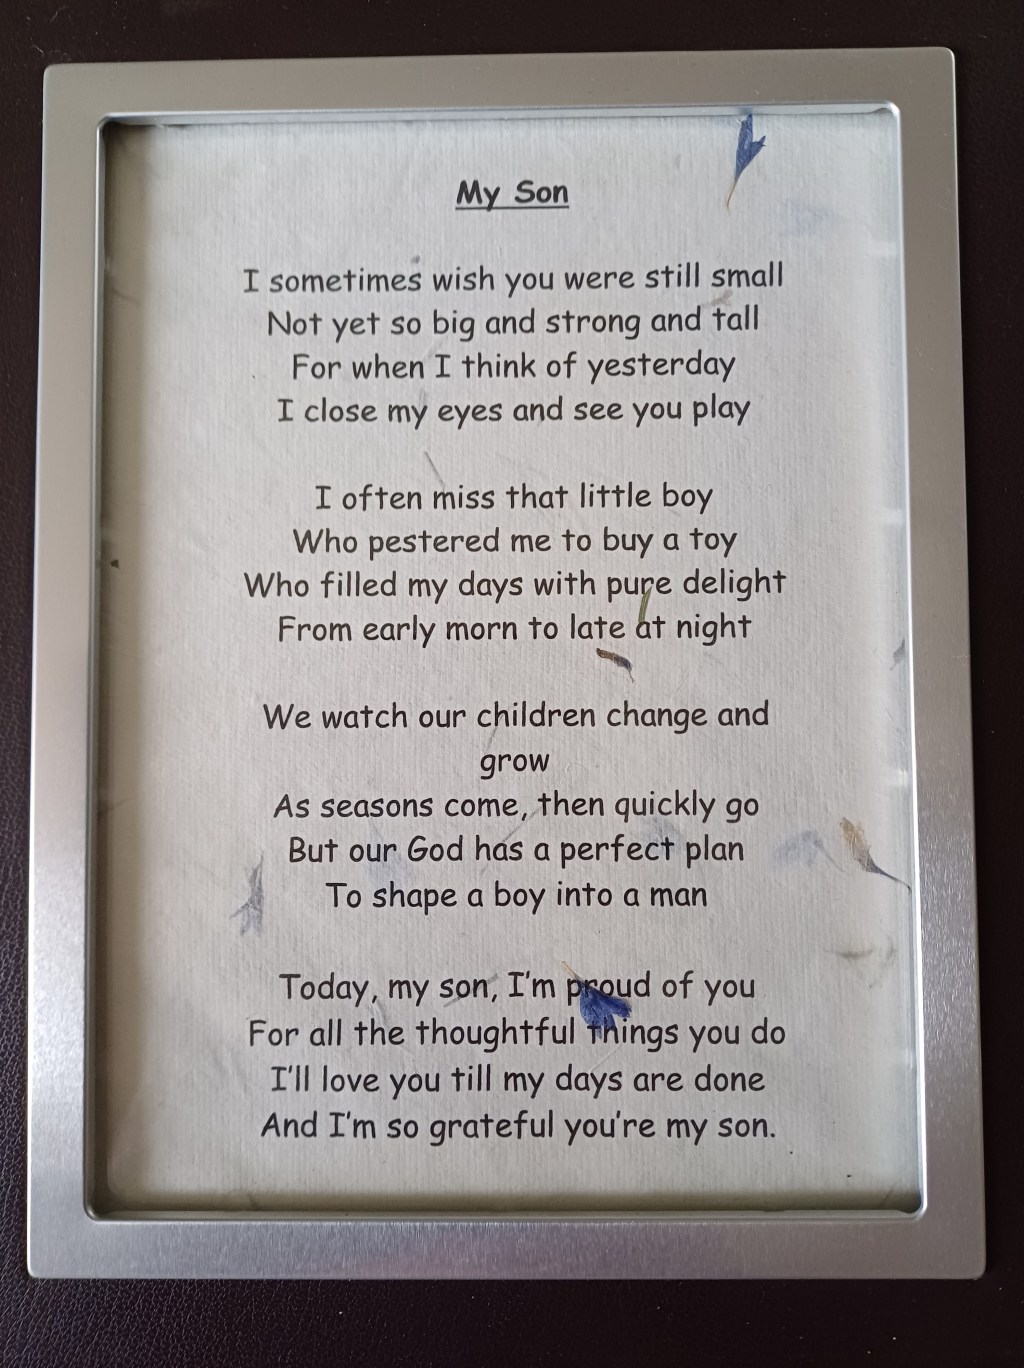 My Son
I sometimes wish you were still small
Not yet so big and strong and tall
For when I think of yesterday
I close my eyes and see you play
I often miss that little boy
Who pestered me to buy a toy
Who filled my days with pure delight
From early morn to late at night
We watch our children change and
grow
As seasons come, then quickly go
But our God has a perfect plan
To shape a boy into a man
Today, my son, I'm proud of you
For all the thoughtful things you do
I'll love you till my days are done
And I'm so grateful you're my son.